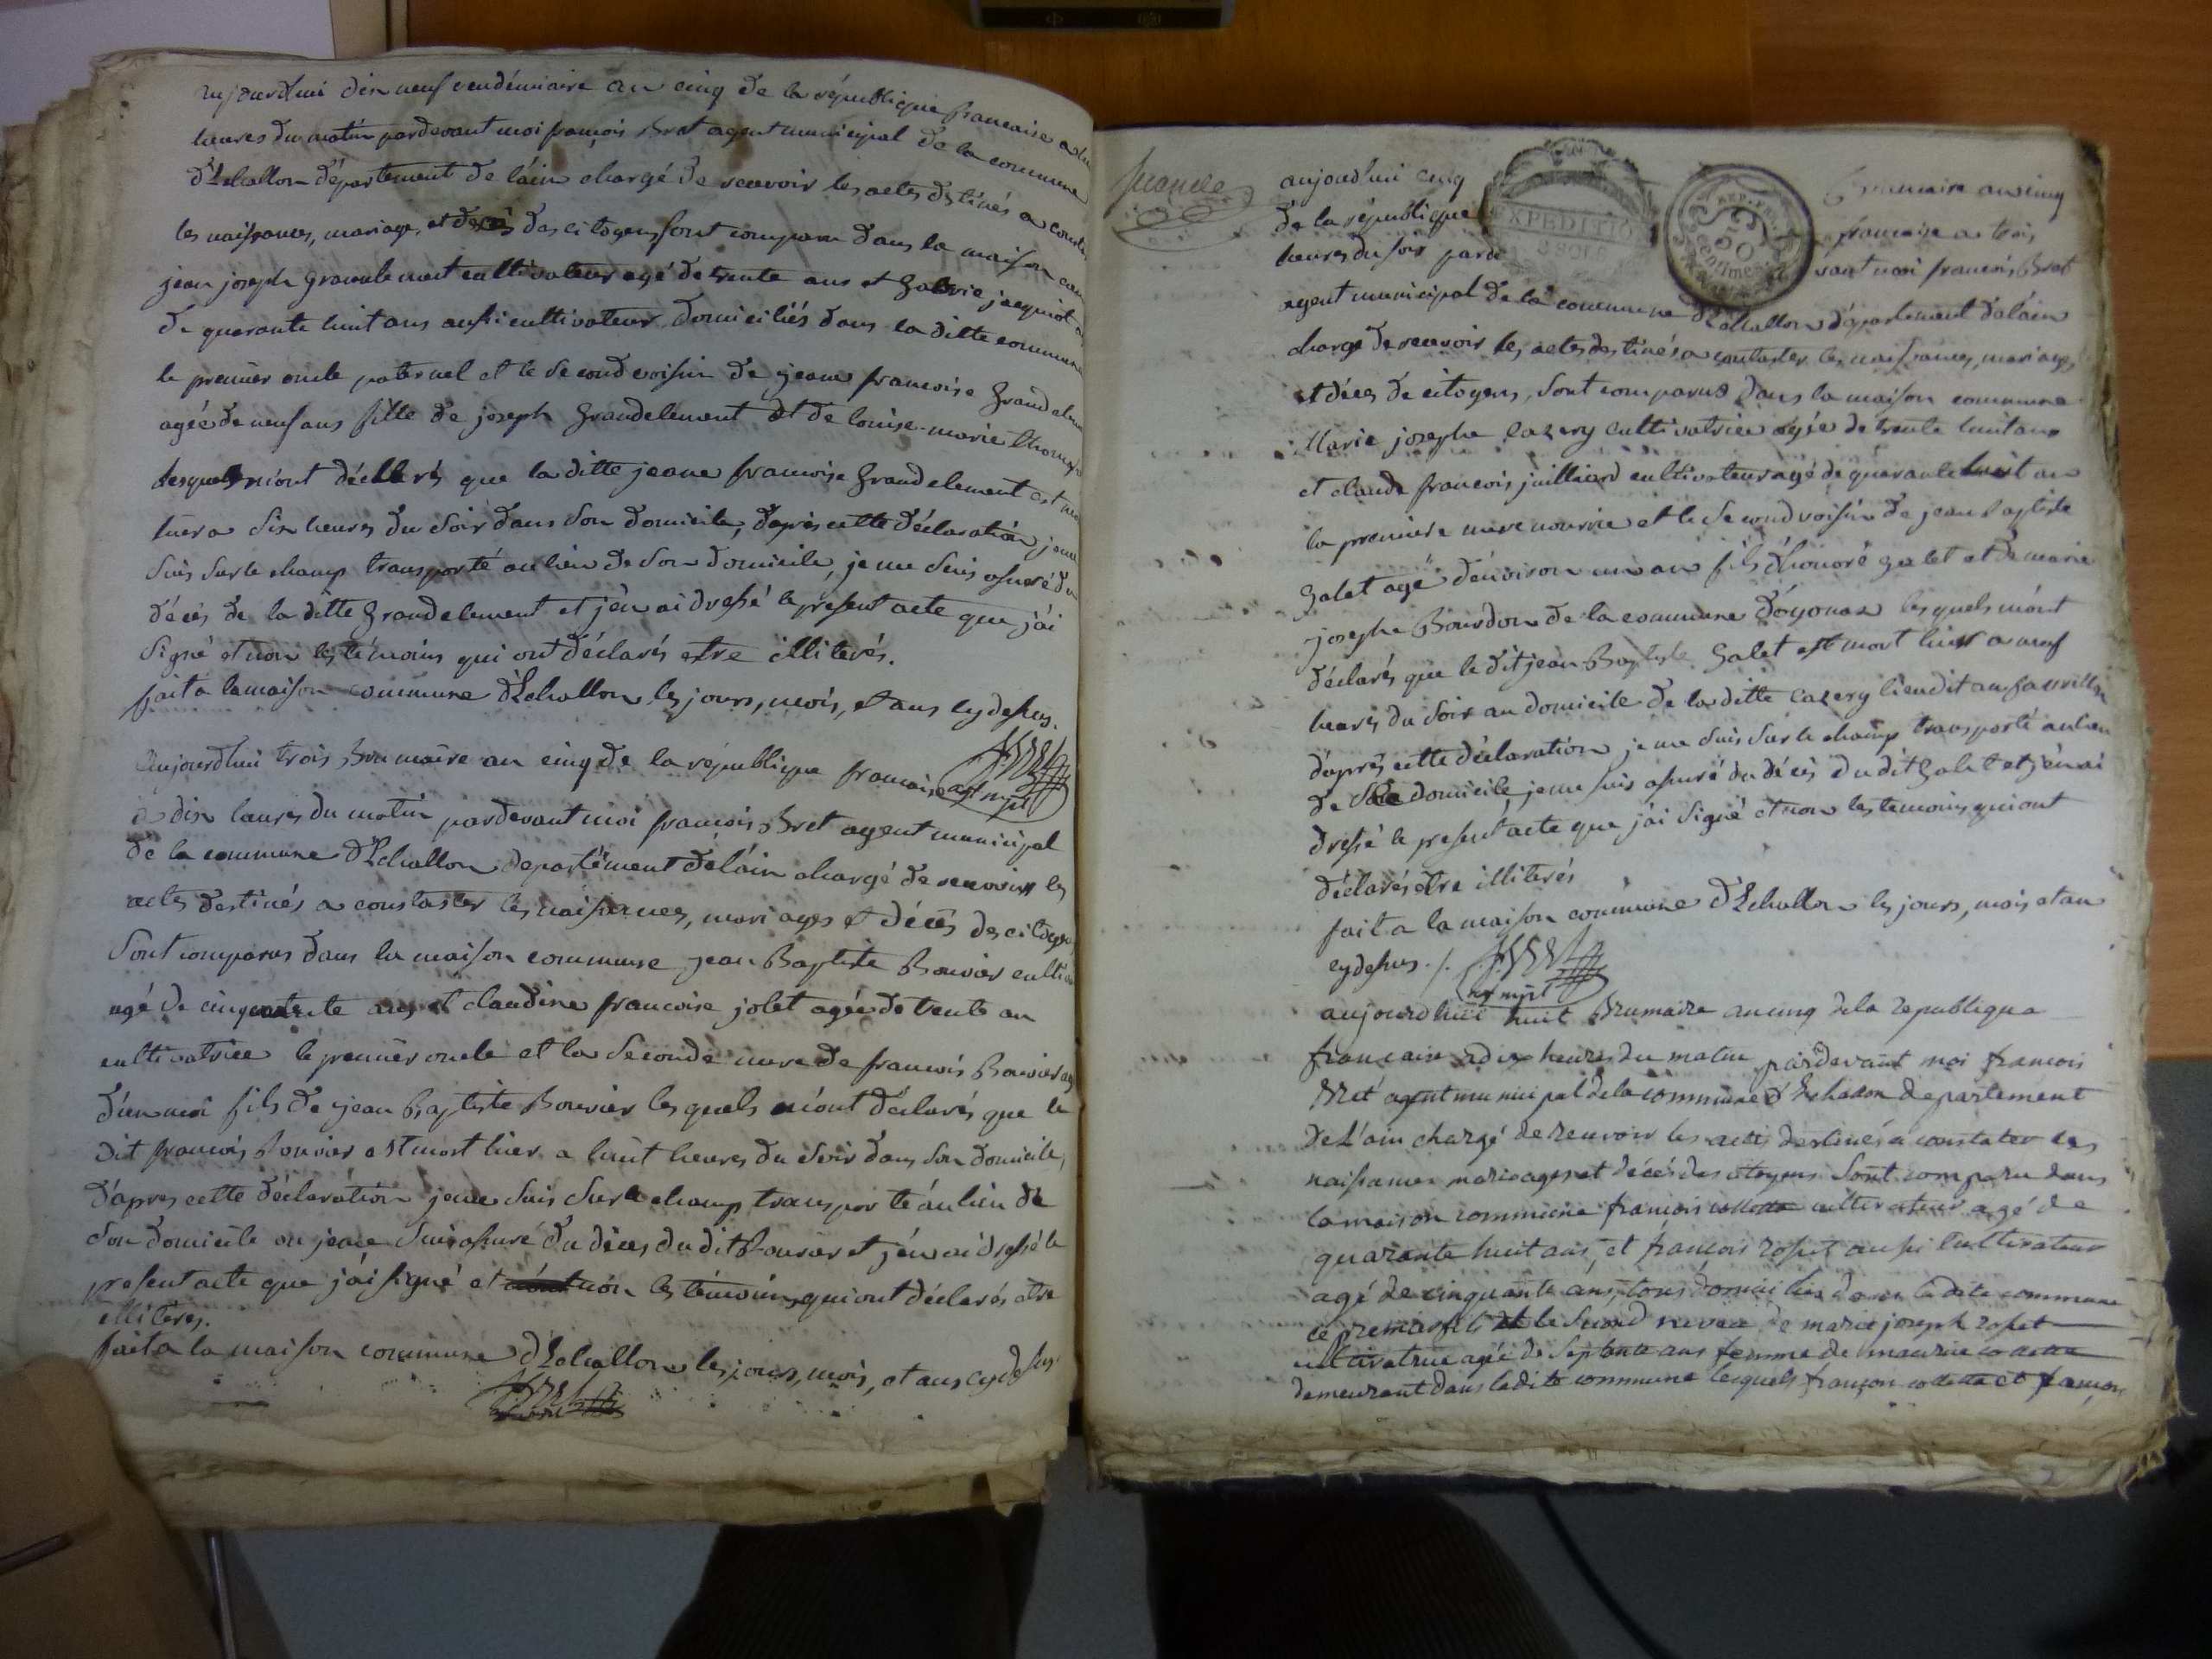 aujourdhui dix neuf vendémiaire an cinq de la république francaise a
heures du matin pardevant moi francois Bret agent municipal de la commune
d'Echallon département de láin chargé de recevoir les actes déstinés a
les naissances, mariages, et decés des citoyens sont comparu dans la maison
jean joseph grandclement cultivateur agé de trente ans et jacquiot
de quarante huit ans aussi cultivateur domiciliés dans la ditte commune
le premier oncle paternel et le second voisin de jeane francoise
agée de neuf ans fille de joseph Grandelement et de louise-marie
lesquels m'ont déclarés que la ditte jeane francoise Grandelement est
hier a six heures du soir dans son domicile, daprès cette déclaration je me
suis sur le champ transporté au lieu de son domicile, je me suis assuré du
décés de la ditte Grandelement et jén ai dressé le present acte que jái
signé et non les témoins qui ont déclarés etre illiterés.
fait a la maison commune d'Echallon les jours, mois, et ans cydessus.
Aujourdhui trois Brumaire an cinq de la république francaise
Bret
agt mpl
a dix heures du matin pardevant moi francois Bret agent municipal
de la commune d'Echallon departément de láin chargé de recevoir les
actes destinés a constaster les naissances, mariages et décés des citoyens
sont comparus dans la maison commune jean Baptiste Bouvier
agé de cinquante ans et claudine francoise jolet agée de trente an
cultivatrice le premier oncle et la seconde mere de francois Bouvier
d'un moi fils de jean Baptiste Bouvier lesquels m'ont déclarés que le
dit francois Bouvier est mort hier a huit heures du soir dans son domicile,
d'apres cette déclaration je me suis sur le champ transporté au lieu de
son domicile ou je me suis assuré du décés du dit Bouvier et jén ai dressé le
present acte que jái signé et non les témoins qui ont déclarés etre
illiterés.
fait a la maison commune d'Echallon les jours, mois, et ans cydessus.
Bret
aujourdhui cinq Brumaire an cinq
de la république francaise a trois
heures du soir pardevant moi francois Bret
EXPEDITIO
2 SOLS
REP. FRA.
50
centimes
agent municipal de la commune d'Echallon département de láin
chargé de recevoir les actes destinés a constaster les naissances, mariages,
et décés de citoyens, sont comparus dans la maison commune
Marie josephe Cazery cultivatrice agée de trente huit ans
et claude francois juilliard cultivateur agé de quarante huit an
la premiere mere nourice et le second voisin de jean Baptiste
Galet agé dénviron un an fils d'honoré Galet et de marie
josephe Bourdon de la commune d'oyonax lesquels mónt
déclarés que le dit jean Baptiste Galet est mort hier a neuf
heures du soir au domicile de la ditte Cazery lieudit au
d'aprés cette déclaration je me suis sur le champ transporté au lieu
de domicile, je me suis assuré du décés du dit Galet et jén ai
dressé le present acte que jái signé et non les temoins qui ont
déclarés etre illiterés
fait a la maison commune d'Echallon les jours, mois et an
cydessus ./. Bret
agt mpl
aujourdhui huit Brumaire an cinq dela republique
francaise a dix heures du matin pardevant moi francois
Bret agent municipal dela commune d'Echalon departement
de L'ain chargé de recevoir les actes destinés a constater les
naissances mariages et décés des citoyens sont comparu dans
la maison commune francois collette cultivateur agé de
quarante huit ans, et francois rosset aussi cultivateur
agé de cinquante ans, tous domiciliés dans ladite commune
le premier fils et le second neveu de marie joseph rosset
cultivatrice agée de septante ans femme de maurice collette
demeurant dans ladite commune lesquels françois collette et françois